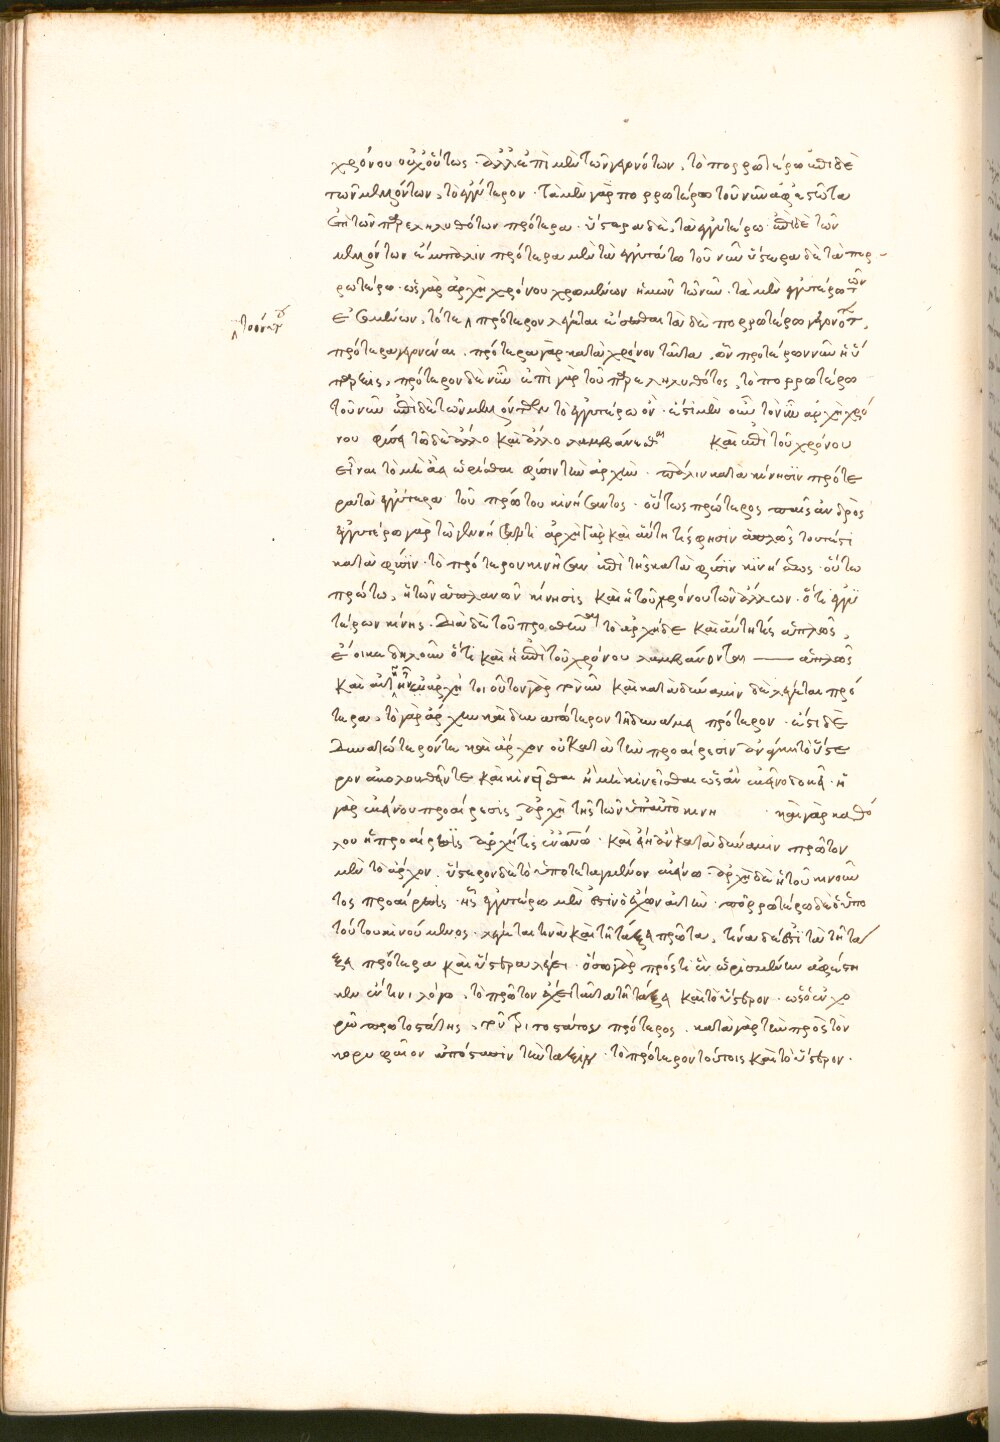 χρόνου οὐχ οὕτως · ἀλλ' ἐπὶ μὲν τῶν γεγονότων, τὸ πορρωτέρω ἐπὶ δὲ
τῶν μελλόντων, τὸ ἐγγύτερον · τὰ μὲν γὰρ πορρωτέρω τοῦ νῦν ἀφεστῶτα
ἐπὶ τῶν παρεληλυθότων πρότερα · ὕστερα δὲ, τὰ ἐγγυτέρω · ἐπὶ δὲ τῶν
μελλόντων ἔμπαλιν πρότερα μὲν τὰ ἐγγυτάτω τοῦ νῦν ὕστερα δὲ τὰ πορ-
ρωτέρω · ὡς γὰρ ἀρχῆ χρόνου χρωμένων ἡμῶν τῶ νῦν · τὰ μὲν ἐγγυτέρω τῶν
τότε πρότερον λέγεται ἔσεσθαι τὰ δὲ πορρωτέρω γεγονότ
πρότερα γεγονέναι · πρότερα γὰρ κατὰ χρόνον ταῦτα, ὧν προτέρων νῦν ἢ ὕ
πρότερον δὲ νῦν ἐπὶ γὰρ τοῦ παρεληλυθότος, τὸ πορρωτέρω
τοῦ νῦν ἐπὶ δὲ τῶν μελλόντων τὸ ἐγγυτέρω ὄν · ἔστι μὲν οὖν τὸ νῦν ἀρχὴ χρό
νου φύσει τῶ δὲ ἄλλο καὶ ἄλλο λαμβάνεσθαι καὶ ἐπὶ τοῦ χρόνου
εἶναι τὸ μὴ ὡρίσθαι φύσιν τὴν ἀρχὴν · πάλιν κατὰ κίνησιν πρότε
ρα τὰ ἐγγύτερα τοῦ πρώτου κινήσαντος · οὕτως πρότερος παῖς ἀνδρὸς
ἐγγυτέρω γὰρ τῶ γεννήσαντι ἀρχὴ γὰρ καὶ αὕτη τίς φησιν ἁπλῶς τουτέστι
κατὰ φύσιν · τὸ πρότερον κινῆσαν ἐπὶ τῆς κατὰ φύσιν κινήσεως · οὕτω
πρώτη, ἡ τῶν ἀπλανῶν κίνησις καὶ ἡ τοῦ κρόνου τῶν ἄλλων · ὅτι ἐγγυ
τέρων κίνησις · διὰ δὲ τοῦ προσθεῖναι τὸ ἀρχὴ δὲ καὶ αὕτη τίς ἁπλῶς,
ἔοικε δηλοῦν ὅτι καὶ ἡ ἐπὶ τοῦ χρόνου λαμβάνονται —— ἁπλῶς
καὶ ἀρχή τοιοῦτον γὰρ τὸ νῦν καὶ κατὰ δύναμιν δὲ λέγεται πρό
τερα, τὸ γὰρ ἄρχειν καὶ δυνατώτερον τῆ δυνάμει πρότερον · ἔστι δὲ
δυνατώτερόν τε καὶ ἄρχον οὗ κατὰ τὴν προαίρεσιν ἀνάγκη τὸ ὕστε
ρον ἀκολουθεῖν τε καὶ κινεῖσθαι ἢ μὴ κινεῖσθαι ὡς ἂν ἐκείνω δοκῆ · ἡ
γὰρ ἐκείνου προαίρεσις, ἀρχὴ τῆς τῶν ὑπ' αὐτὸ κινή · καὶ γὰρ καθό
λου ἡ προαίρεσις ἀρχή τις ἐν ἅπασι · καὶ ἔστιν κατὰ δύναμιν πρῶτον
μὲν τὸ ἄρχον · ὕστερον δὲ τὸ ὑποτεταγμένον ἐκείνω · ἀρχὴ δὲ ἡ τοῦ κινοῦν
τος προαίρεσις · ἧς ἐγγυτέρω μὲν ἐστὶν ὁ ἔχων αὐτὴν · πορρωτέρω δὲ ὁ ὑπὸ
τούτου κινούμενος · λέγεται τινὰ καὶ τῆ τάξει πρῶτα, τίνα δέ ἐστι τὰ τῆ τά
ξει πρότερα καὶ ὕστερα λέγει · ὅσα γὰρ πρός τι ἓν ὡρισμένον ἀφέστη
κεν ἔν τινι λόγω, τὸ πρῶτον ἔχει ταῦτα τῆ τάξει καὶ τὸ ὕστερον · ὡς ὁ ἐν χο
ρῶ πρωτοστάτης, τοῦ τριτοστάτου πρότερος · κατὰ γὰρ τὴν πρὸς τὸν
κορυφαῖον ἀπόστασιν τὴν τάξιν · τὸ πρότερον τούτοις καὶ τὸ ὕστερον ·